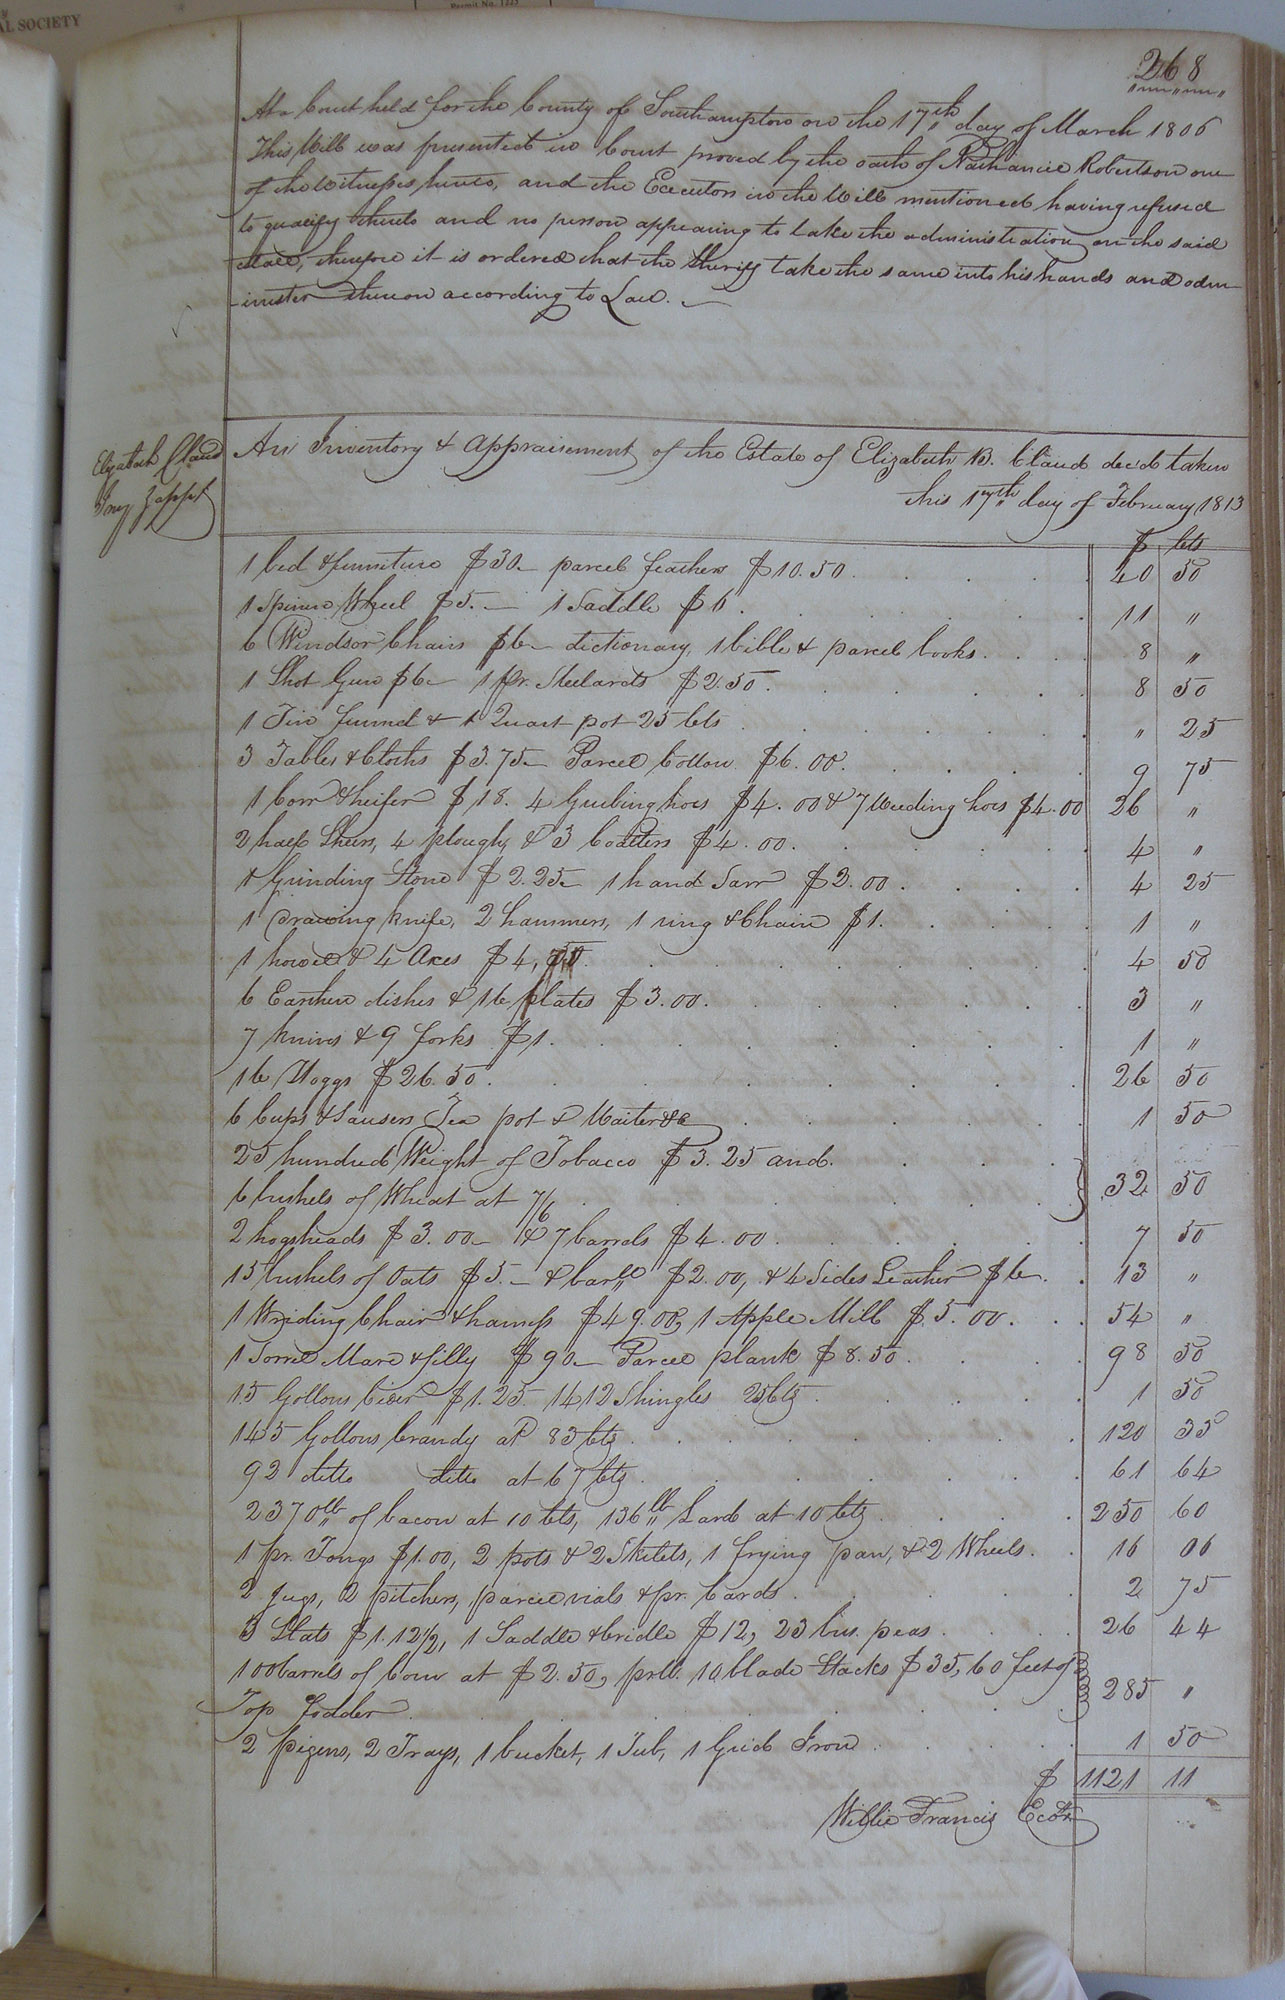 AL SOCIETY
Permit No. 1225
268
At a Court held for the County of Southampton on the 17th day of March 1806
This Will was presented in Court proved by the oath of Nathaniel Robertson one
of the witnesses hereto, and the Executors in the Will mentioned having refused
to qualify thereto and no person appearing to take the administration on the said
estate, therefore it is ordered that the Sheriff take the same into his hands and adm
inister thereon according to Law.
Elizabeth Claud
Inv &appt
An Inventory & Appraisement of the Estate of Elizabeth B. Claud decd taken
this 17th day of February 1813
$ Cts
1 bed & furniture $30 parcel feathers $10.50 40 50
1 Spinn Wheel $5. 1 Saddle $6 11 "
6 Windsor Chairs $6 dictionary, 1 bible & parcel books 8 "
1 Shot Gun $6 1 pr. Steelards $2.50 8 50
1 Tin funnel & 1 Quart pot 25 Cts " 25
3 Tables & Cloths $3.75 Parcel Cotton $6.00. 9 75
1 Cow & heifer $18. 4 Grubing hoes $4.00 & 7 Weeding hoes $4.00 26 "
2 half Shers, 4 ploughs & 3 Coalters $4.00. 4 "
1 Grinding Stone $2.25 1 hand Saw $2.00. 4 25
1 Drawing knife, 2 hammers, 1 ring & Chain $1. 1 "
1 howel & 4 Axes $4,50 4 50
6 Earthen dishes & 16 plates $3.00. 3 "
7 knives & 9 forks $1. 1 "
16 Hoggs $26.50. 26 50
6 Cups & Sausers Tea pot & Waiter &c 1 50
25 hundred Weight of Tobacco $3.25 and.
6 bushels of Wheat at 7/6 32 50
2 hogsheads $3.00 & 7 barrels $4.00 7 50
15 bushels of Oats $5. & barll $2.00, & 4 Sides Leather $6. 13 "
1 Wriding Chair & harness $49.00, 1 Apple Mill $5.00. 54 "
1 Sorrel Mare & filly $90 Parcel plank $8.50. 98 50
15 Gollons Cider $1.25 1412 Shingles 25 Cts 1 50
145 Gollons brandy at 83 Cts 120 35
92 ditto ditto at 67 Cts 61 64
2370 lb of bacon at 10 Cts, 136 lb Lard at 10 Cts 250 60
1 pr. Tongs $1.00, 2 pots & 2 Skilets, 1 frying pan, & 2 Wheels. 16 06
2 Jugs, 2 pitchers, parcel vials & pr. Cards 2 75
3 Slats $1.12½, 1 Saddle & bridle $12, 23 bus. peas 26 44
100 barrels of Corn at $2.50, prll. 10 blade Stacks $35, 60 feet of
Top fodder 285 "
2 pigens, 2 Trays, 1 bucket, 1 Tub, 1 Grid Iron 1 50
$ 1121 11
Willie Francis Ecotr